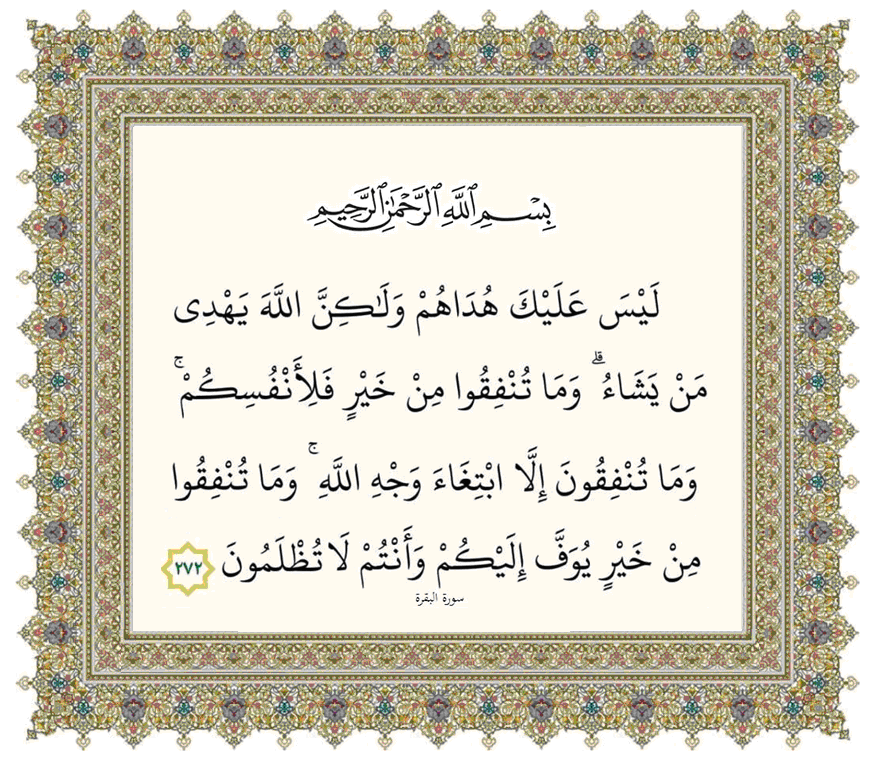 بِسْمِ ٱللَّهِ ٱلرَّحْمَٰنِ ٱلرَّحِيمِ
لَيْسَ عَلَيْكَ هُدَاهُمْ وَلَٰكِنَّ اللَّهَ يَهْدِى
مَنْ يَشَاءُ ۗ وَمَا تُنْفِقُوا مِنْ خَيْرٍ فَلِأَنْفُسِكُمْ ۚ
وَمَا تُنْفِقُونَ إِلَّا ابْتِغَاءَ وَجْهِ اللَّهِ ۚ وَمَا تُنْفِقُوا
مِنْ خَيْرٍ يُوَفَّ إِلَيْكُمْ وَأَنْتُمْ لَا تُظْلَمُونَ ٢٧٢
سورة البقرة